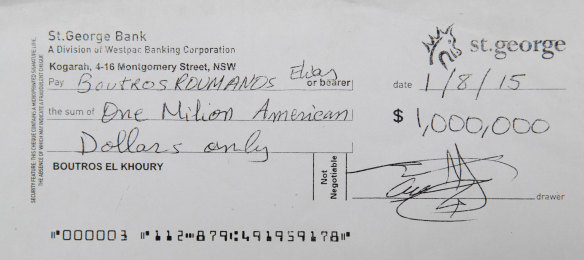 St.George Bank
A Division of Westpac Banking Corporation
st.george
Kogarah, 4-16 Montgomery Street, NSW
Pay BOUTROS ROUMANOS Elias or bearer
date 1/8/15
the sum of One Milion American
$ 1,000,000
Dollars only
BOUTROS EL KHOURY
Not Negotiable
drawer
SECURITY FEATURE: THIS CHEQUE CONTAINS A MICROPRINTED SIGNATURE LINE.
THE ABSENCE OF WHICH MAY INDICATE A FRAUDULENT CHEQUE
⑈000003 ⑈112⑉879⑆491959178⑈